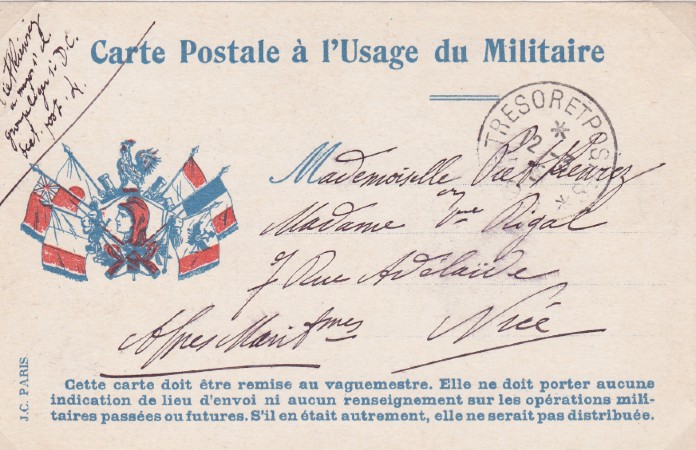 Carte Postale à l'Usage du Militaire
TRESOR ET POSTES
Mademoiselle
Madame Vve Rigal
7 Rue Adélaïde
Nice
Alpes Maritimes
J.C. PARIS
Cette carte doit être remise au vaguemestre. Elle ne doit porter aucune
indication de lieu d'envoi ni aucun renseignement sur les opérations mili-
taires passées ou futures. S'il en était autrement, elle ne serait pas distribuée.